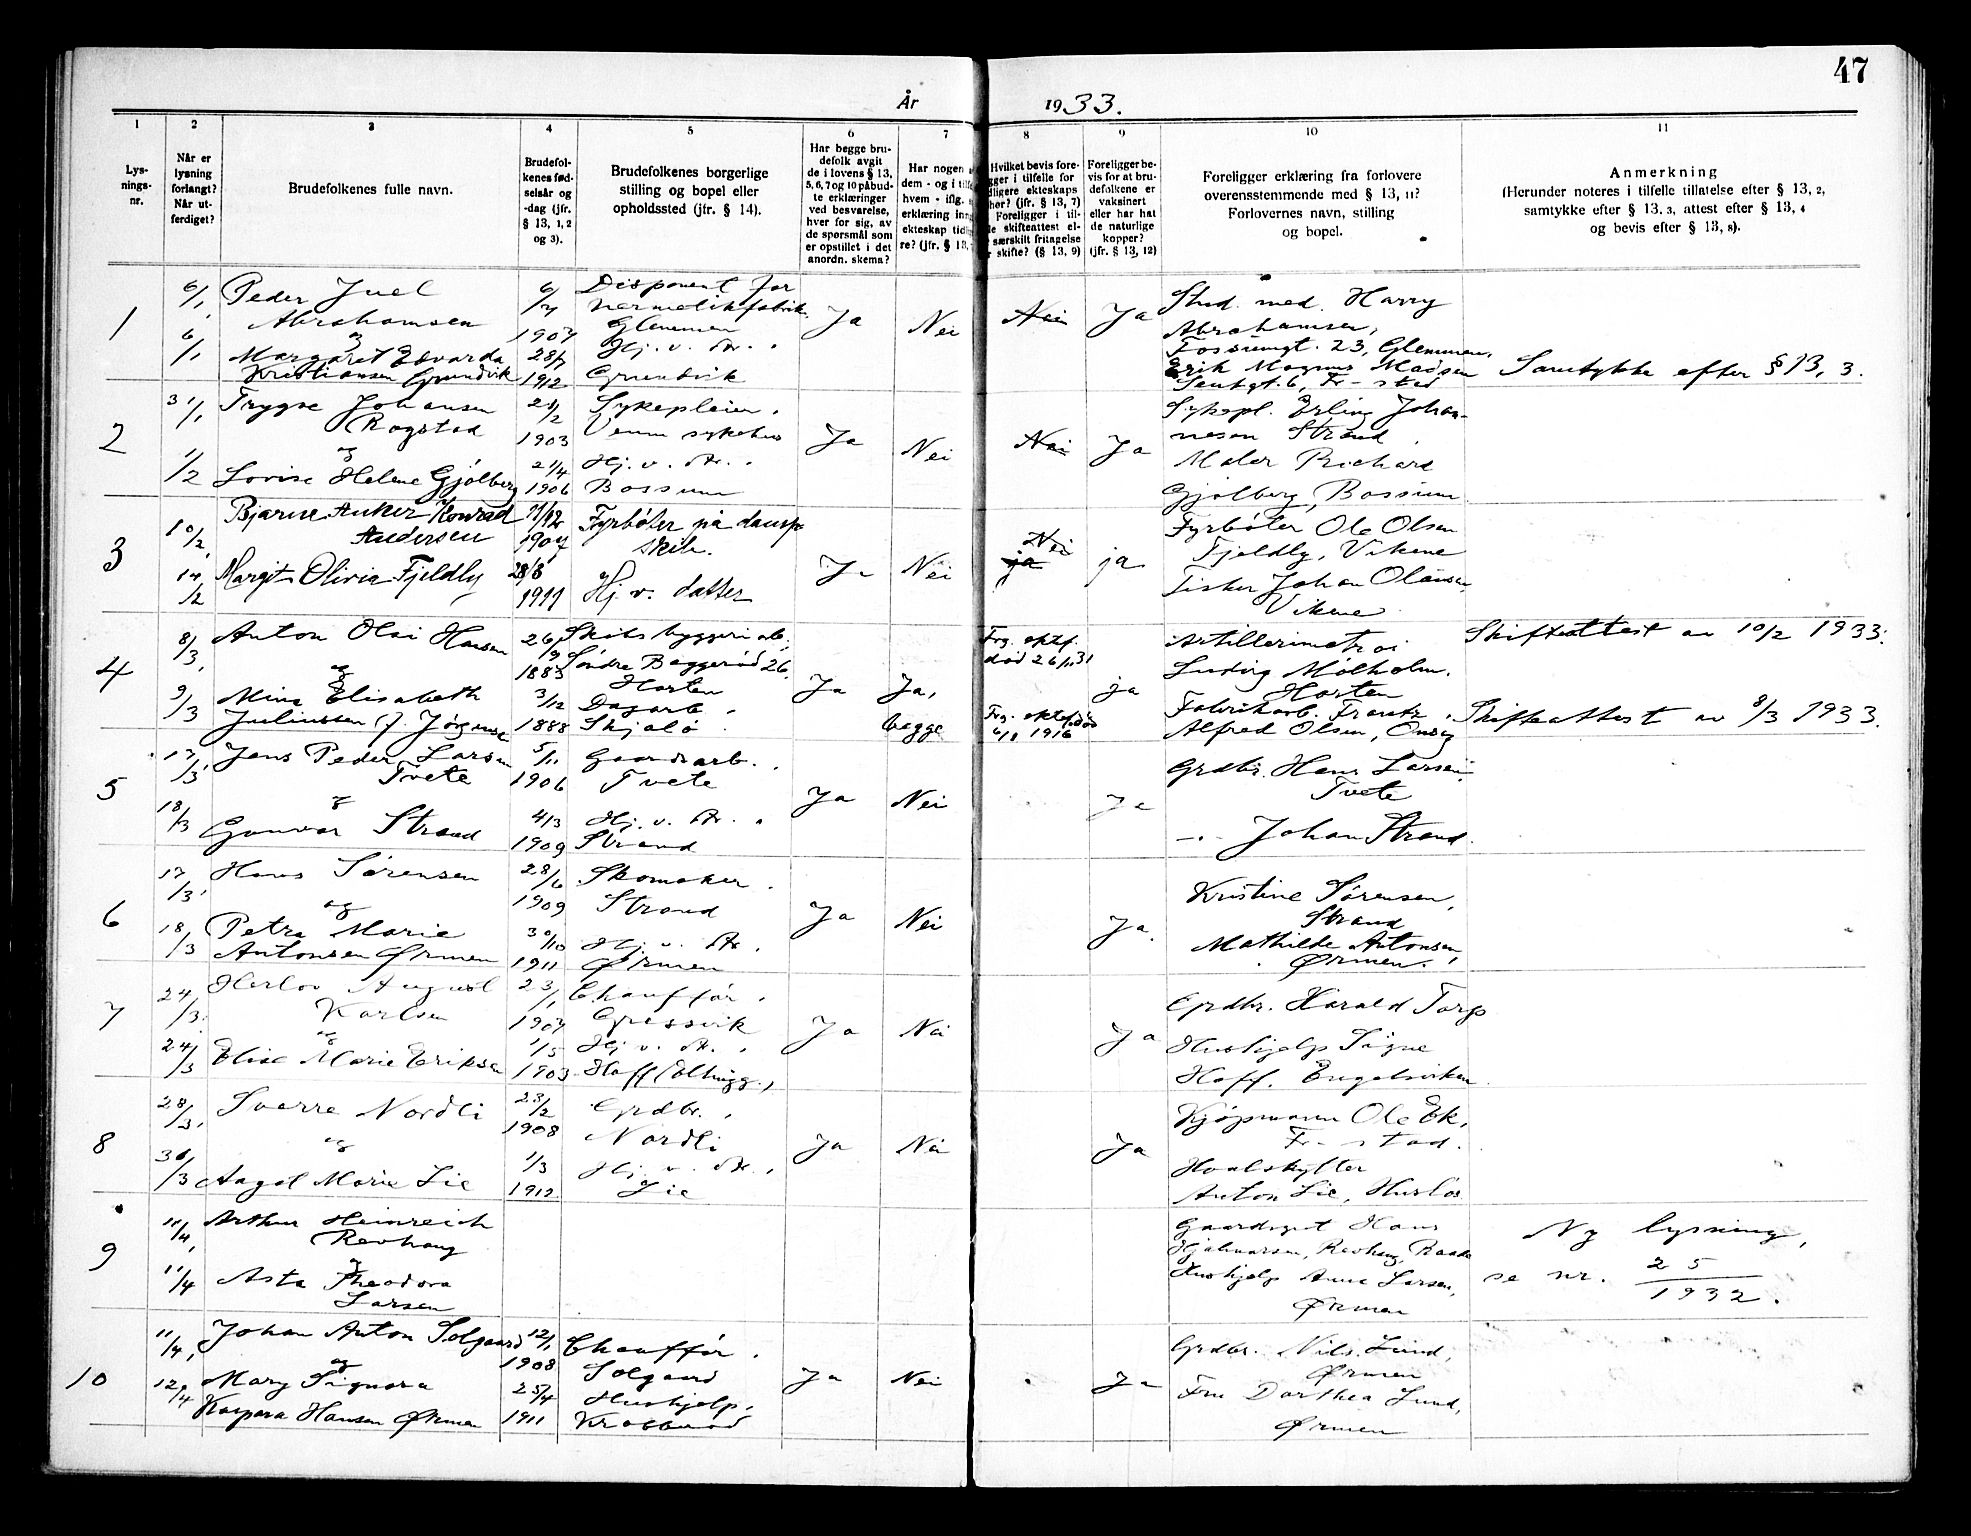 47
År 1933.
1 2 3 4 5 6 7 8 9 10 11
Lys-
nings-
nr.
Når er
lysning
forlangt?
Når ut-
ferdiget?
Brudefolkenes fulle navn.
Brudefol-
kenes fød-
selsår og
-dag (jfr.
§ 13, 1, 2
og 3).
Brudefolkenes borgerlige
stilling og bopel eller
opholdssted (jfr. § 14).
Har begge bru-
defolk avgit
de i lovens § 13,
5, 6, 7 og 10 påbud-
te erklæringer
ved besvarelse,
hver for sig, av
de spørsmål som
er opstillet i det
anordn. skema?
Har nogen a
dem - og i tilfe
hvem - iflg. s
erklæring inng
ekteskap tidli
re? (jfr. § 13,
Hvilket bevis fore-
gger i tilfelle for
dligere ekteskaps
hør? (jfr. § 13, 7)
Foreligger i til-
le skifteattest el-
særskilt fritagelse
skifte? (§ 13, 9)
Foreligger be-
vis for at bru-
defolkene er
vaksinert
eller har hat
de naturlige
kopper?
(jfr. § 13, 12)
Foreligger erklæring fra forlovere
overensstemmende med § 13, 11?
Forlovernes navn, stilling
og bopel.
Anmerkning
(Herunder noteres i tilfelle tillatelse efter § 13, 2,
samtykke efter § 13, 3, attest efter § 13, 4
og bevis efter § 13, 8).
1
6/1
6/1
Peder Juel
Abrahamsen
og
Margaret Edvarda
Kristiansen Grundvik
6/7
1907
28/7
1912
Disponent for
hermetikfabrik
Glemmen
Hj. v. dtr.
Grundvik
Ja
Nei
Nei
Ja
Stud. med. Harry
Abrahamsen,
Fossumgt. 23, Glemmen,
Erik Magnus Madsen
6, Fr-stad
Samtykke efter § 13, 3.
2
31/1
1/2
Trygve Johansen
Rogstad
og
Lovise Helene Gjølberg
21/2
1903
21/4
1906
Sykepleier,
Veum sykehus
Hj. v. dtr.
Bossum
Ja
Nei
Nei
Ja
Sykepl. Erling Johan-
nesen Strand
Maler Richard
Gjølberg, Bossum
3
10/2
14/2
Bjarne Anker Konrad
Andersen
Margit Olivia Fjeldly
11/12
1907
28/8
1911
Fyrbøter på dampp-
skib.
Hj. v. datter
Ja
Nei
Nei
ja
ja
Fyrbøter Ole Olsen
Fjeldly, Vikene
Fisker Johan Olausen,
Vikene
4
8/3
9/3
Anton Olai Hansen
og
Mina Elisabeth
Juliussen f. Jørgensen
26/9
1883
3/12
1888
Skibsbyggeriarb.
Søndre Baggerød 26.
Horten
Dagarb.
Skjælø
Ja
Ja,
begge
Frg. ektef.
død 26/1 31
Frg. ektef. død
6/8 1916
ja
Artillerimatros
Ludvig Mølholm.
Horten
Fabrikarb. Frantz
Alfred Olsen, Onsøy
Skifteattest av 10/2 1933.
Skifteattest av 8/3 1933.
5
17/3
18/3
Jens Peder Larsen
Tvete
og
Gunvor Strand
5/11
1906
4/3
1909
Gaardsarb.
Tvete
Hj. v. dtr.
Strand
Ja
Nei
Ja
Grdbr. Hans Larsen
Tvete
-"- Johan Strand.
6
17/3
18/3
Hans Sørensen
og
Petra Marie
Antonsen Ørmen
28/6
1909
30/10
1911
Skomaker
Strand
Hj. v. dtr.
Ørmen
Ja
Nei
Ja.
Kristine Sørensen,
Strand
Mathilde Antonsen,
Ørmen.
7
24/3
24/3
Herlov August
Karlsen
og
Elise Marie Eriksen
23/1
1907
1/5
1903
Chauffør
Gressvik
Hj. v. dtr.
Hoff (Elhugg.)
Ja
Nei
Ja
Grdbr. Harald Torp
Hushjelp Signe
Hoff. Engelsviken
8
28/3
30/3
Sverre Nordli
og
Aagot Marie Lie
23/2
1908
1/3
1912
Grdbr.
Nordli
Hj. v. dtr.
Lie
Ja
Nei
Ja
Kjøpmann Ole Ek,
Fr-stad.
Hvalskytter
Anton Lie, Husløs
9
11/4
11/4
Arthur Heinreich
Revhaug
og
Asta Theodora
Larsen
Gaardsgut Hans
Hjalmarsen, Revhaug, Raade
Hushjelp Anna Larsen,
Ørmen
Ny lysning,
se nr. 25
1932.
10
11/4
12/4
Johan Anton Solgaard
og
Mary Signora
Kaspara Hansen Ørmen
12/1
1908
25/4
1911
Chauffør
Solgaard
Hushjelp,
Krabberød
Ja
Nei
Ja
Grdbr. Nils Lund,
Ørmen
Fru Dorthea Lund,
Ørmen